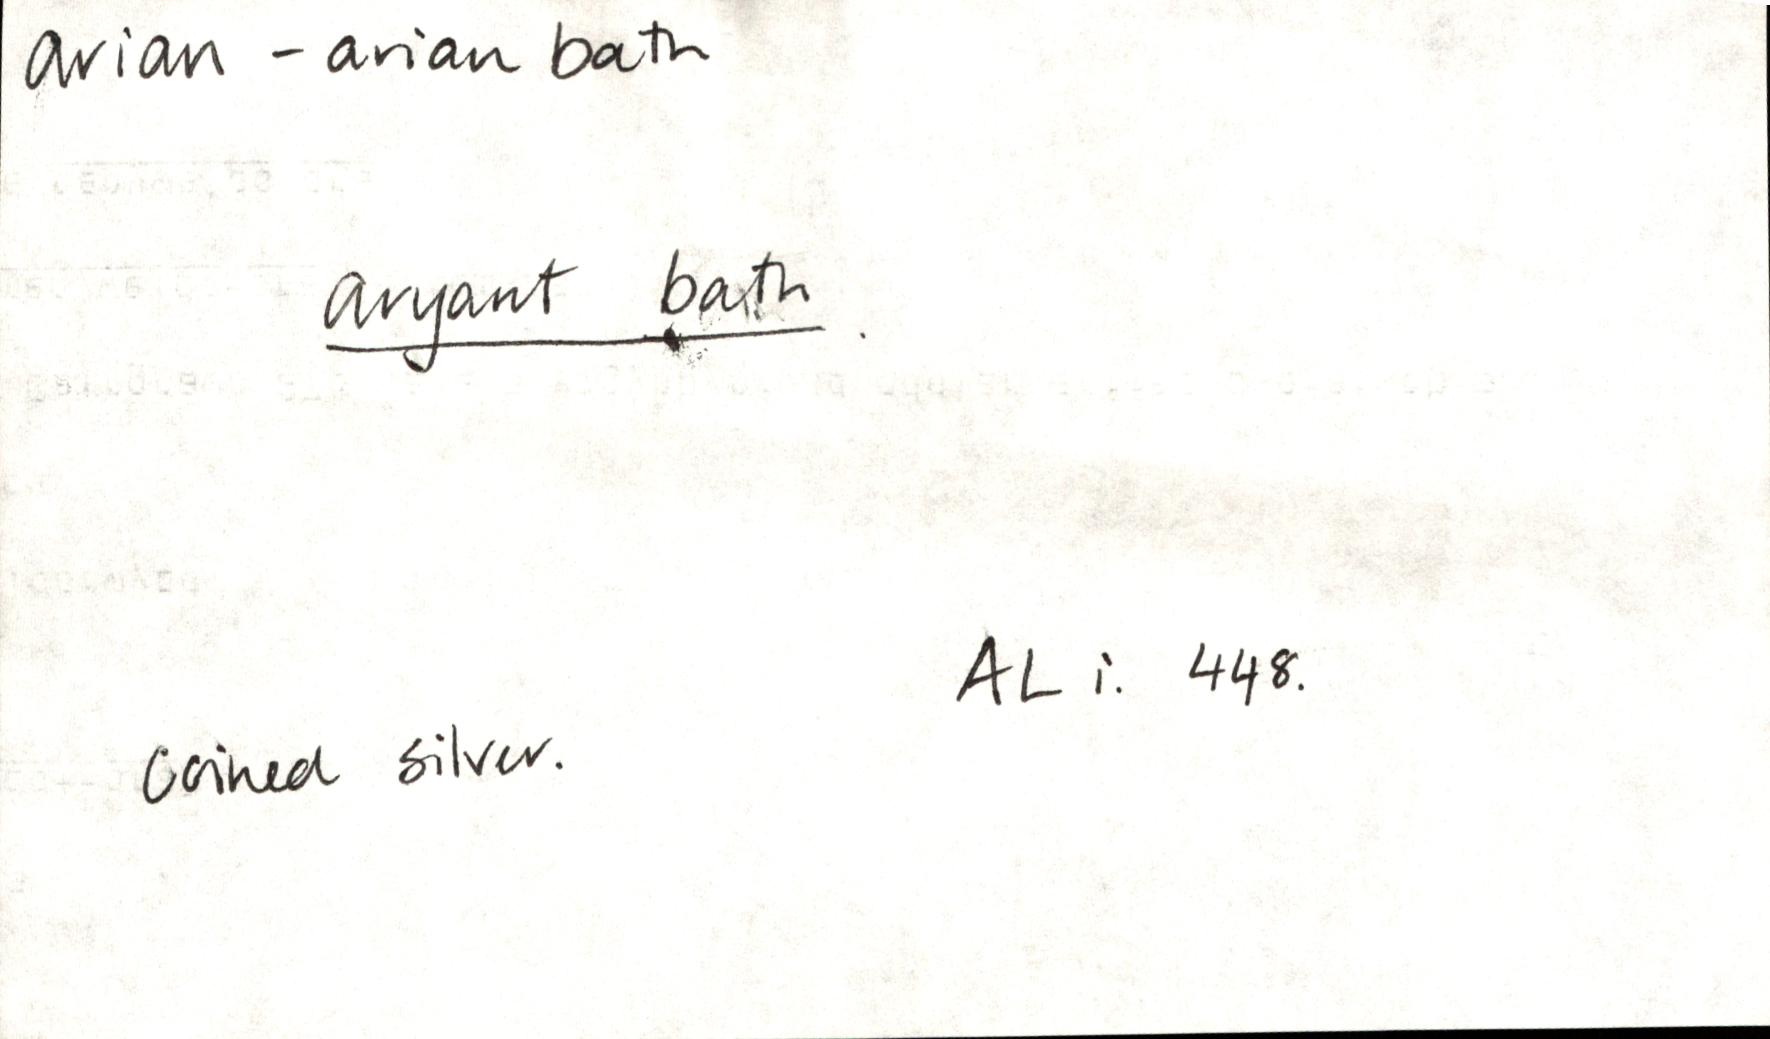 arian - arian bath
aryant bath.
AL i. 448.
coined silver.